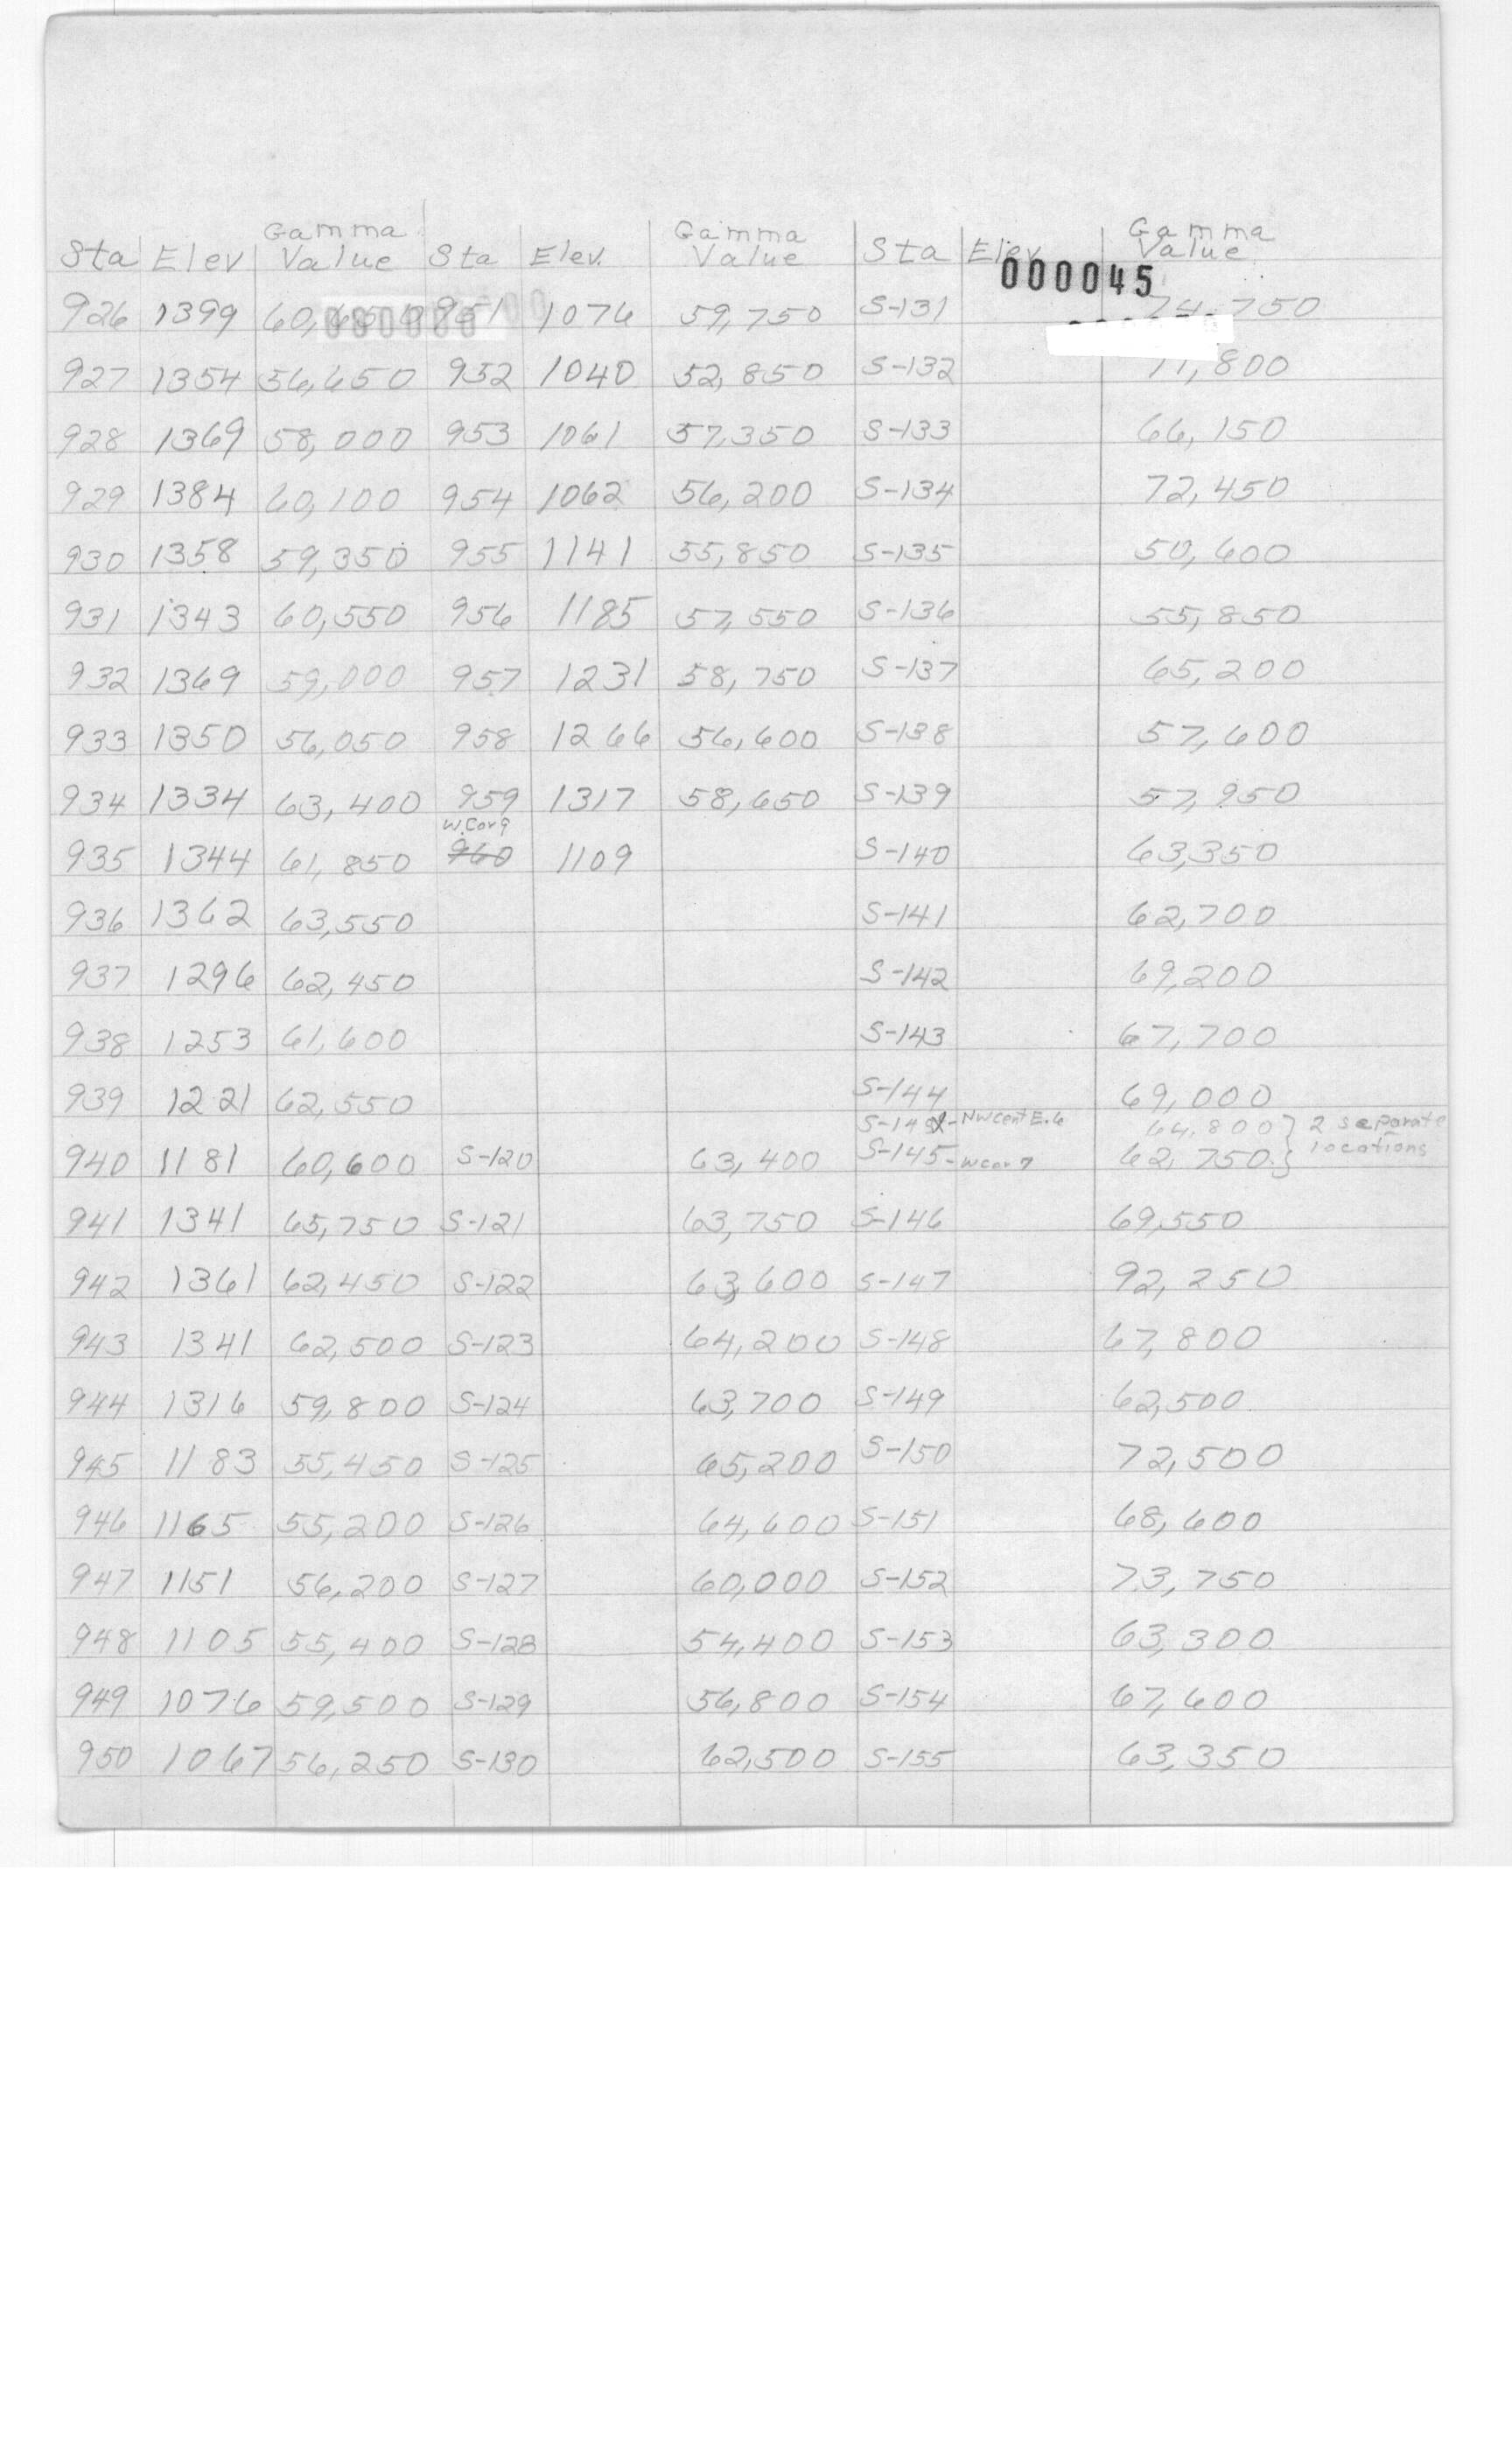 Gamma Gamma Gamma
Sta Elev Value Sta Elev. Value Sta Elev Value
000045
926 1399 951 1076 59,750 S-131 74,750
927 1354 56,650 952 1040 52,850 S-132 71,800
928 1369 58,000 953 1061 57,350 S-133 66,150
929 1384 60,100 954 1062 56,200 S-134 72,450
930 1358 59,350 955 1141 55,850 S-135 50,600
931 1343 60,550 956 1185 57,550 S-136 55,850
932 1369 59,000 957 1231 58,750 S-137 65,200
933 1350 56,050 958 1266 56,600 S-138 57,600
934 1334 63,400 959 1317 58,650 S-139 57,950
W.Cor 9
935 1344 61,850 960 1109 S-140 63,350
936 1362 63,550 S-141 62,700
937 1296 62,450 S-142 69,200
938 1253 61,600 S-143 67,700
939 1221 62,550 S-144 69,000
S-145 - NW Cent E.6 64,800 } 2 separate
940 1181 60,600 S-120 63,400 S-145 - W cor 7 62,750 } locations
941 1341 65,750 S-121 63,750 S-146 69,550
942 1361 62,450 S-122 63,600 S-147 92,250
943 1341 62,500 S-123 64,200 S-148 67,800
944 1316 59,800 S-124 63,700 S-149 62,500
945 1183 55,450 S-125 65,200 S-150 72,500
946 1165 55,200 S-126 64,600 S-151 68,600
947 1151 56,200 S-127 60,000 S-152 73,750
948 1105 55,400 S-128 54,400 S-153 63,300
949 1076 59,500 S-129 56,800 S-154 67,600
950 1067 56,250 S-130 62,500 S-155 63,350